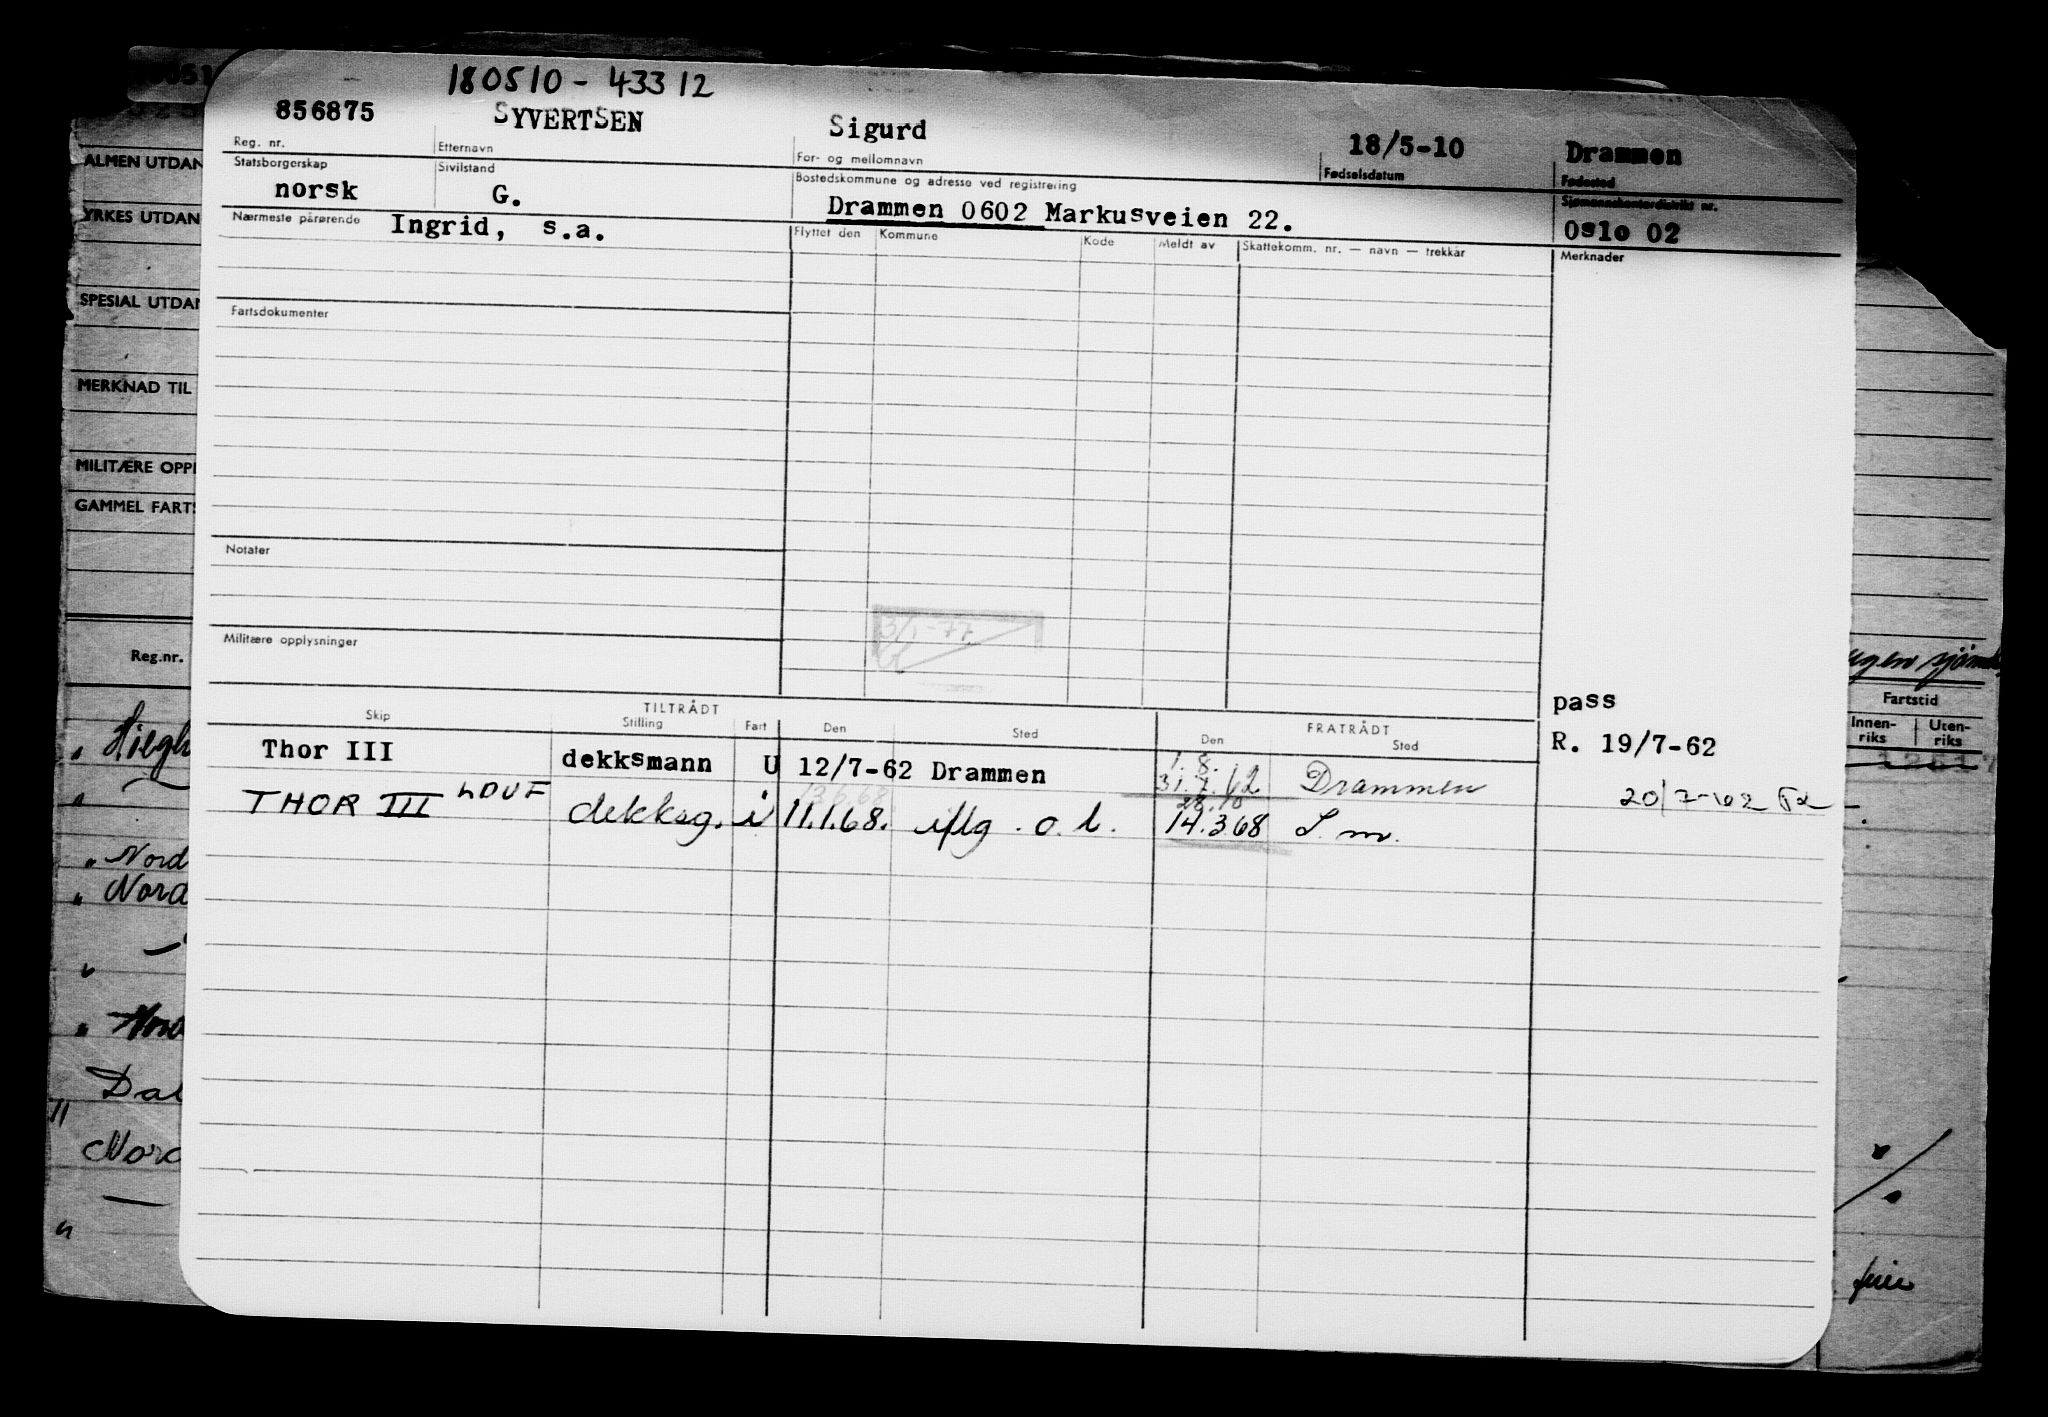 180510-43312
856875 SYVERTSEN Sigurd 18/5-10 Drammen
Reg. nr. Etternavn For- og mellomnavn Fødselsdatum Fødested
Statsborgerskap Sivilstand Bostedskommune og adresse ved registrering Sjømannskontordistrikt nr.
norsk G. Drammen 0602 Markusveien 22. Oslo 02
Nærmeste pårørende Ingrid, s.a. Flyttet den Kommune Kode Meldt av Skattekomm. nr. — navn — trekkår Merknader
Fartsdokumenter
Notater
3/1-77
Militære opplysninger
pass
TILTRÅDT FRATRÅDT
Skip Stilling Fart Den Sted Den Sted
R. 19/7-62
Thor III dekksmann U 12/7-62 Drammen 1.8. 31.7.62 Drammen
20/7-62
THOR III LDVF dekksg. i 11.1.68. iflg. o.l. 14.3.68 S.m.
28.10
13.6.68
ALMEN UTDAN
YRKES UTDAN
SPESIAL UTDAN
MERKNAD TIL
MILITÆRE OPPL
GAMMEL FARTS
Reg.nr.
Nord
Nord
Dal
Nord
Fartstid
Innen-riks Uten-riks